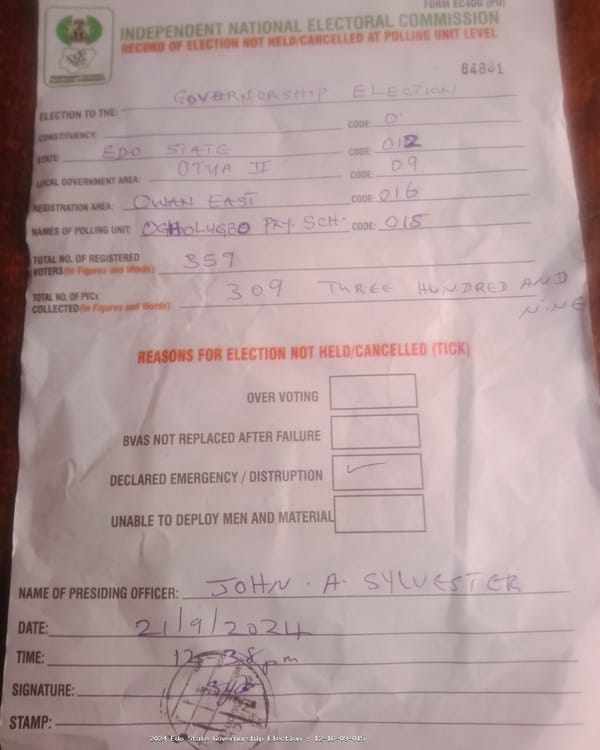 FORM EC40G (PU)
INDEPENDENT NATIONAL ELECTORAL COMMISSION
RECORD OF ELECTION NOT HELD/CANCELLED AT POLLING UNIT LEVEL
84801
ELECTION TO THE: GOVERNORSHIP ELECTION
CONSTITUENCY: CODE: 0
STATE: EDO STATE CODE: 012
LOCAL GOVERNMENT AREA: OTUA II CODE: 09
REGISTRATION AREA: OWAN EAST CODE: 016
NAMES OF POLLING UNIT: OGHOLUGBO PRY. SCH. CODE: 015
TOTAL NO. OF REGISTERED
VOTERS (In Figures and Words): 359
TOTAL NO. OF PVCs
COLLECTED (In Figures and Words): 309 THREE HUNDRED AND
NINE
REASONS FOR ELECTION NOT HELD/CANCELLED (TICK)
OVER VOTING
BVAS NOT REPLACED AFTER FAILURE
DECLARED EMERGENCY / DISTRUPTION ✓
UNABLE TO DEPLOY MEN AND MATERIAL
NAME OF PRESIDING OFFICER: JOHN . A. SYLVESTER
DATE: 21/9/2024
TIME: 12-38pm
SIGNATURE:
STAMP:
2024 Edo State Governorship Election : 12-16-09-015